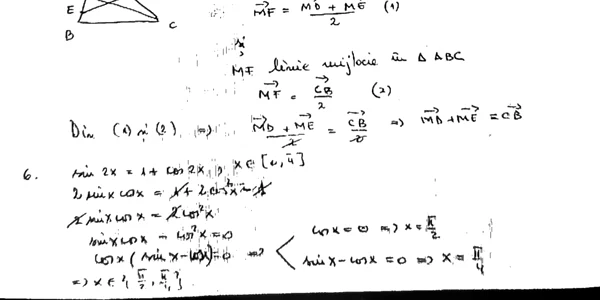 E
B
C
MF = (MD + ME)/2 (1)
și
MF linie mijlocie în Δ ABC
MF = CB/2 (2)
Din (1) și (2) ⇒ (MD + ME)/2 = CB/2 ⇒ MD + ME = CB
6. sin 2x = 1 + cos 2x, x ∈ [0, π]
2 sin x cos x = 1 + 2 cos²x - 1
2 sin x cos x = 2 cos²x
sin x cos x - cos²x = 0
cos x (sin x - cos x) = 0 ⇒
cos x = 0 ⇒ x = π/2
sin x - cos x = 0 ⇒ x = π/4
⇒ x ∈ {π/2, π/4}